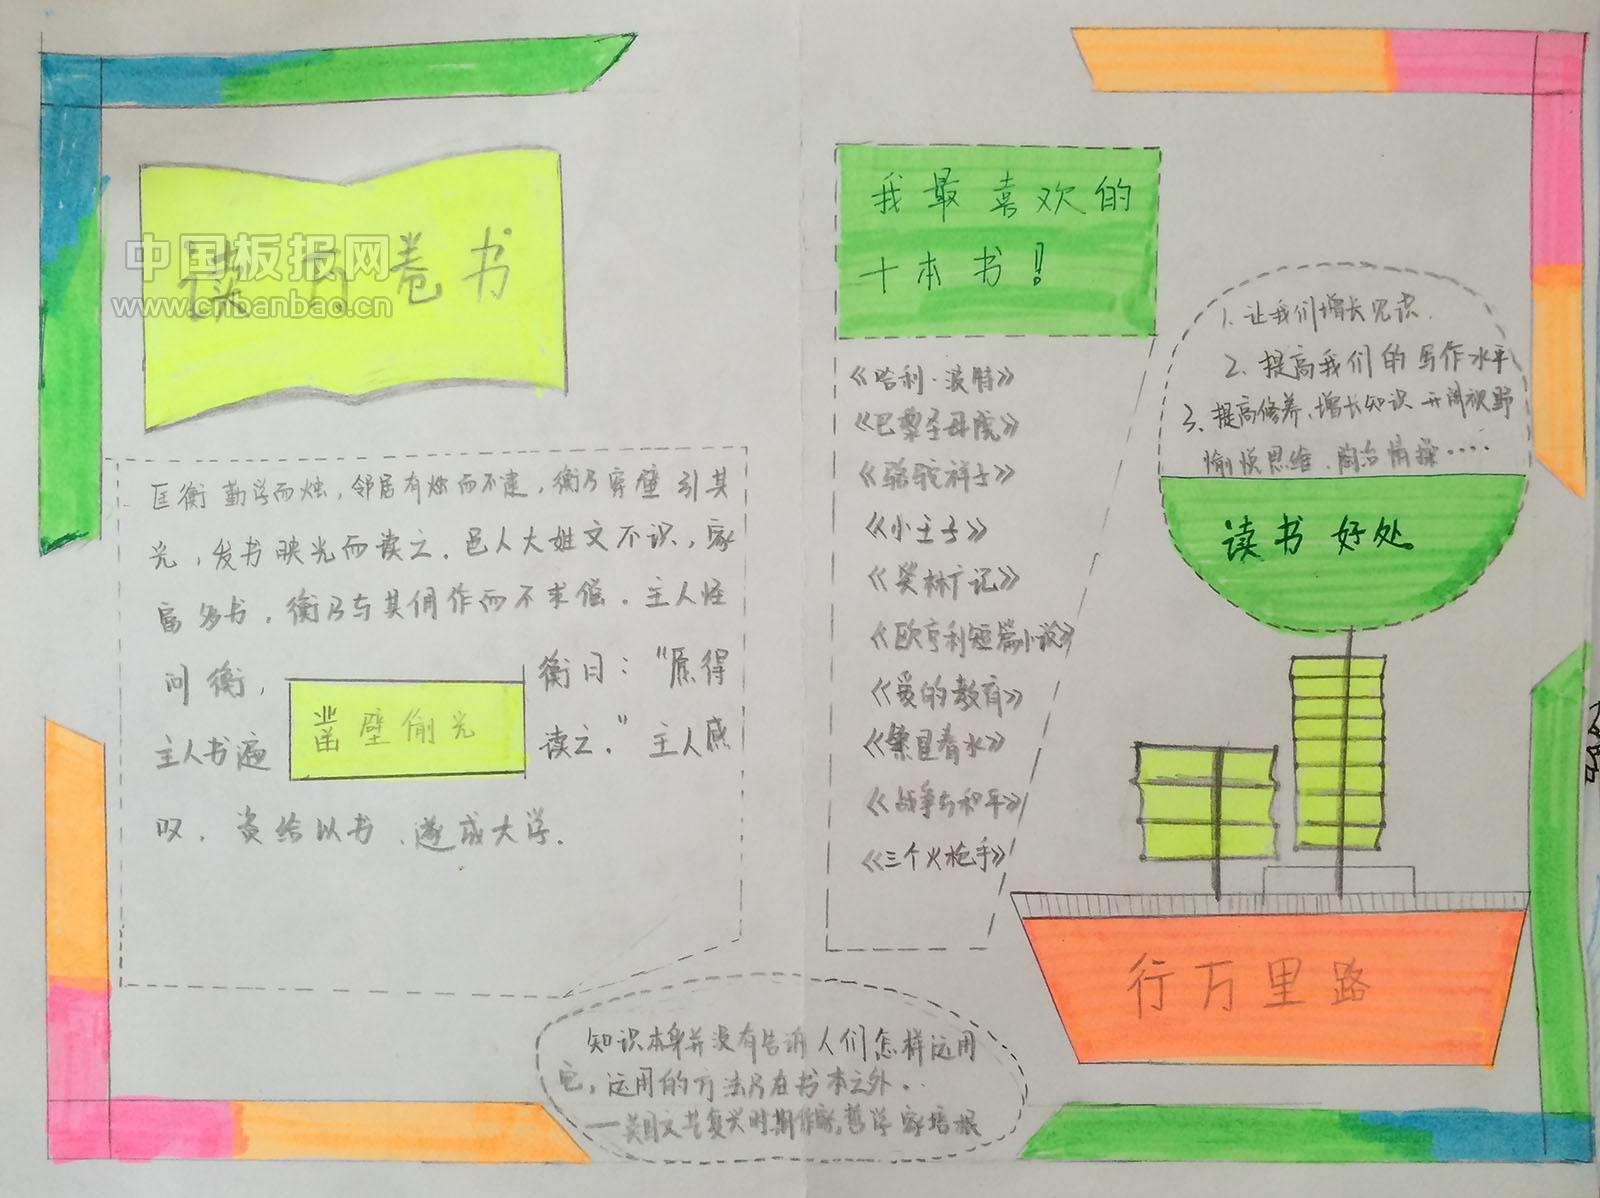 读万卷书
中国板报网
www.cnbanbao.cn
匡衡 勤学而烛，邻居有烛而不逮，衡乃穿壁引其
光，发书映光而读之．邑人大姓文不识，家
富多书，衡乃与其佣作而不求偿．主人怪
问衡， 衡曰："愿得
主人书遍 读之．"主人感
叹．资给以书、遂成大学．
凿壁偷光
我最喜欢的
十本书！
《哈利·波特》
《巴黎圣母院》
《骆驼祥子》
《小王子》
《笑林广记》
《欧亨利短篇小说》
《爱的教育》
《繁星春水》
《战争与和平》
《三个火枪手》
1、让我们增长见识．
2、提高我们的写作水平
3、提高修养、增长知识 开阔视野
愉悦思维、陶冶情操····
读书好处
行万里路
知识本身并没有告诉人们怎样运用
它，运用的方法乃在书本之外．
——英国文艺复兴时期作家，哲学家培根